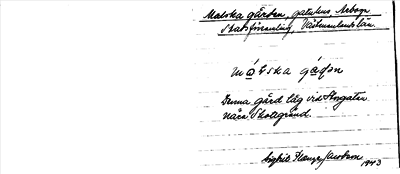 Matska gården, gatuhus Arboga
Stadsförsamling, Västmanlands län.
mátska gáḍən
Denna gård låg vid Storgatan
nära Skottgränd.
Ingrid Jacobson 1943